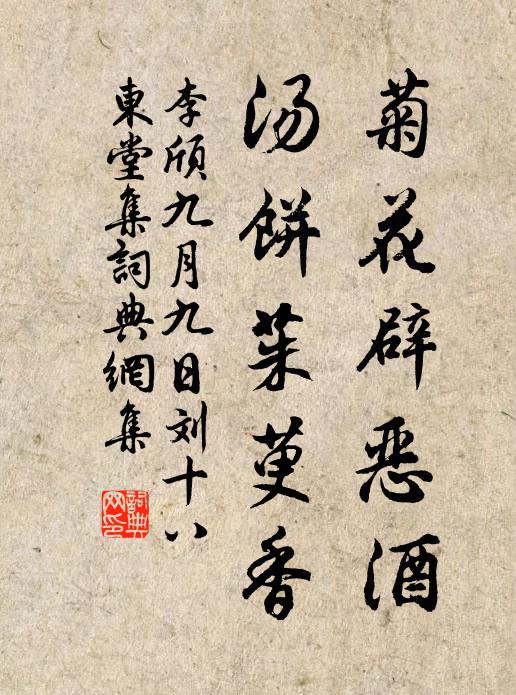 菊花辟恶酒
汤餅茱萸香
李颀九月九日刘十八
東堂集詞典網集
詞典
网印